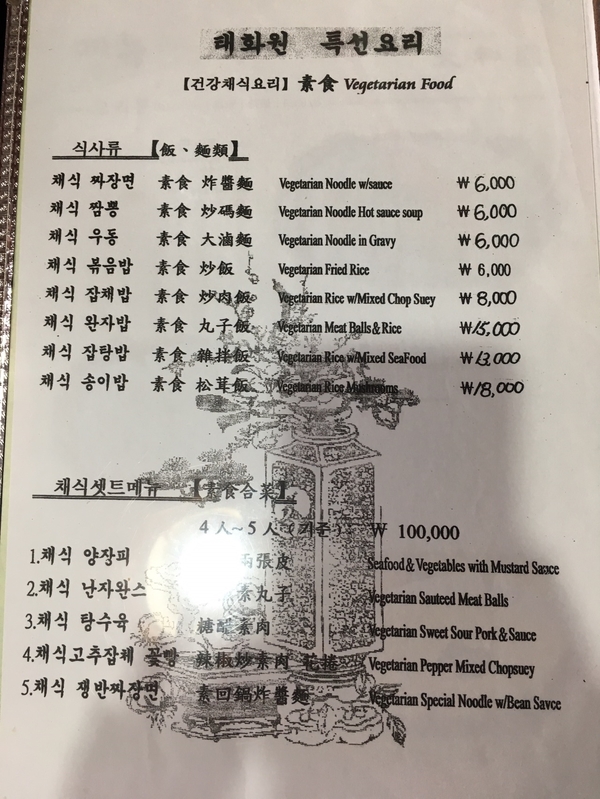 태화원 특선요리
【건강채식요리】 素食 Vegetarian Food
식사류 【飯、麵類】
채식 짜장면 素食 炸醬麵 Vegetarian Noodle w/sauce ₩ 6,000
채식 짬뽕 素食 炒碼麵 Vegetarian Noodle Hot sauce soup ₩ 6,000
채식 우동 素食 大滷麵 Vegetarian Noodle in Gravy ₩ 6,000
채식 볶음밥 素食 炒飯 Vegetarian Fried Rice ₩ 6,000
채식 잡채밥 素食 炒肉飯 Vegetarian Rice w/Mixed Chop Suey ₩ 8,000
채식 완자밥 素食 丸子飯 Vegetarian Meat Balls & Rice ₩15,000
채식 잡탕밥 素食 雜拌飯 Vegetarian Rice w/Mixed SeaFood ₩13,000
채식 송이밥 素食 松茸飯 Vegetarian Rice Mushrooms ₩18,000
채식셋트메뉴 【素食合菜】
4人~5人 (기준) ₩ 100,000
1.채식 양장피 兩張皮 Seafood & Vegetables with Mustard Sauce
2.채식 난자완스 素丸子 Vegetarian Sauteed Meat Balls
3.채식 탕수육 糖醋素肉 Vegetarian Sweet Sour Pork & Sauce
4.채식고추잡채 꽃빵 辣椒炒素肉 花捲 Vegetarian Pepper Mixed Chopsuey
5.채식 쟁반짜장면 素回鍋炸醬麵 Vegetarian Special Noodle w/Bean Savce